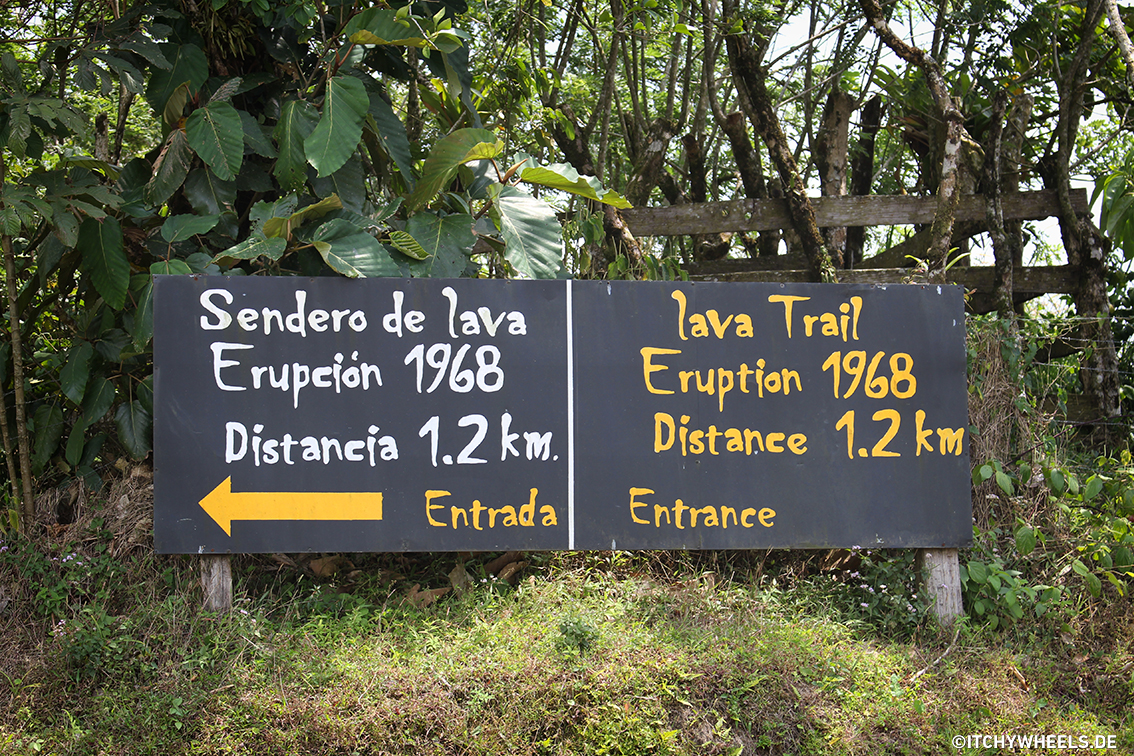 Sendero de lava
Erupción 1968
Distancia 1.2 km.
Entrada
lava Trail
Eruption 1968
Distance 1.2 km
Entrance
©ITCHYWHEELS.DE